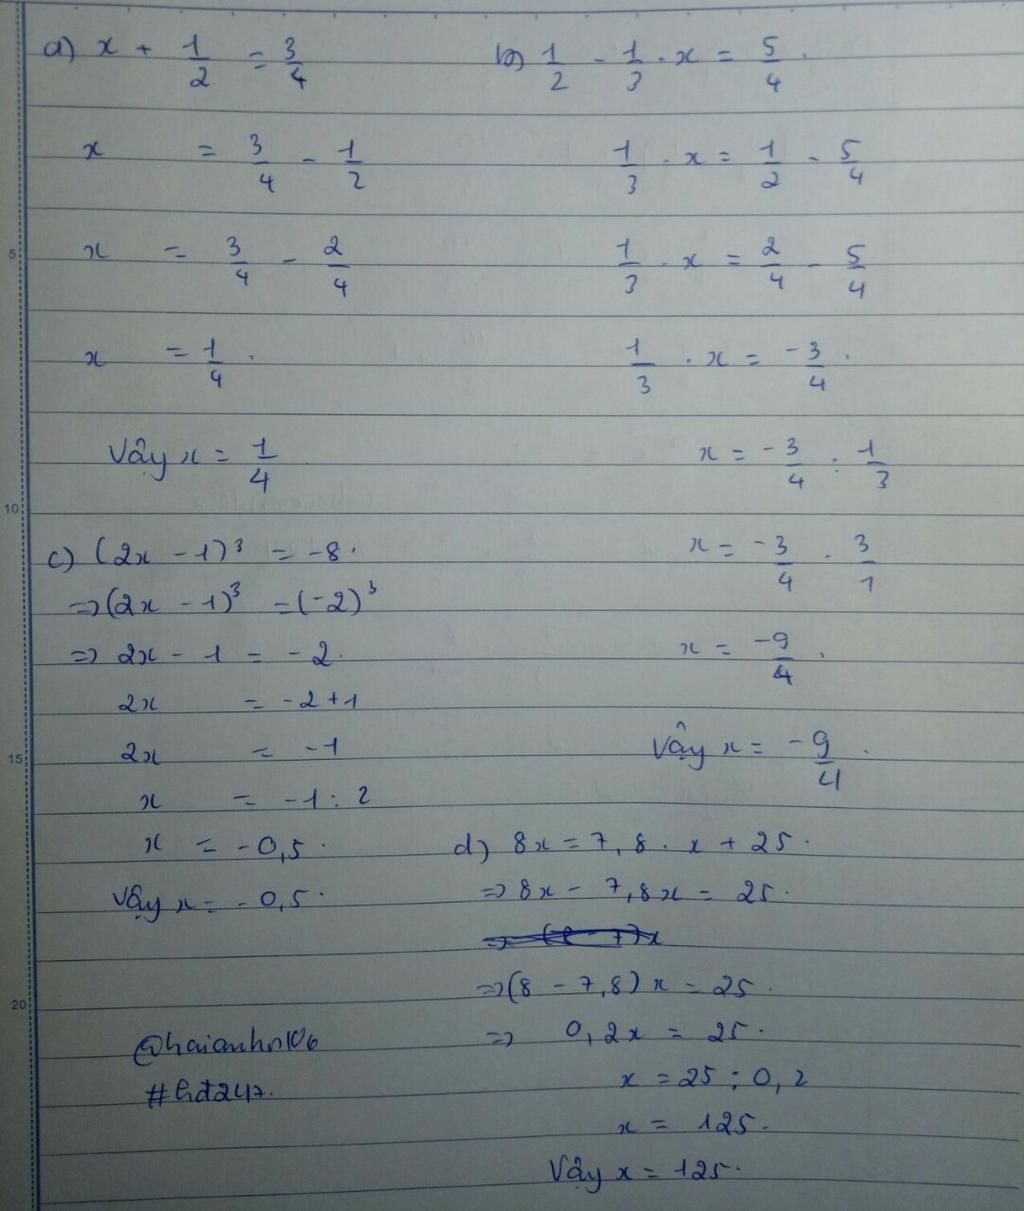 a) x + 1/2 = 3/4
x = 3/4 - 1/2
x = 3/4 - 2/4
x = 1/4.
Vậy x = 1/4
b) 1/2 - 1/3 . x = 5/4.
1/3 . x = 1/2 - 5/4
1/3 . x = 2/4 - 5/4
1/3 . x = -3/4.
x = -3/4 : 1/3
x = -3/4 . 3/1
x = -9/4.
Vậy x = -9/4.
c) (2x - 1)³ = -8.
=> (2x - 1)³ = (-2)³
=> 2x - 1 = -2.
2x = -2 + 1
2x = -1
x = -1 : 2
x = -0,5.
Vậy x = -0,5.
d) 8x = 7,8 . x + 25.
=> 8x - 7,8x = 25.
=> (8 - 7,8) x = 25.
=> 0,2x = 25.
x = 25 : 0,2
x = 125.
Vậy x = 125.